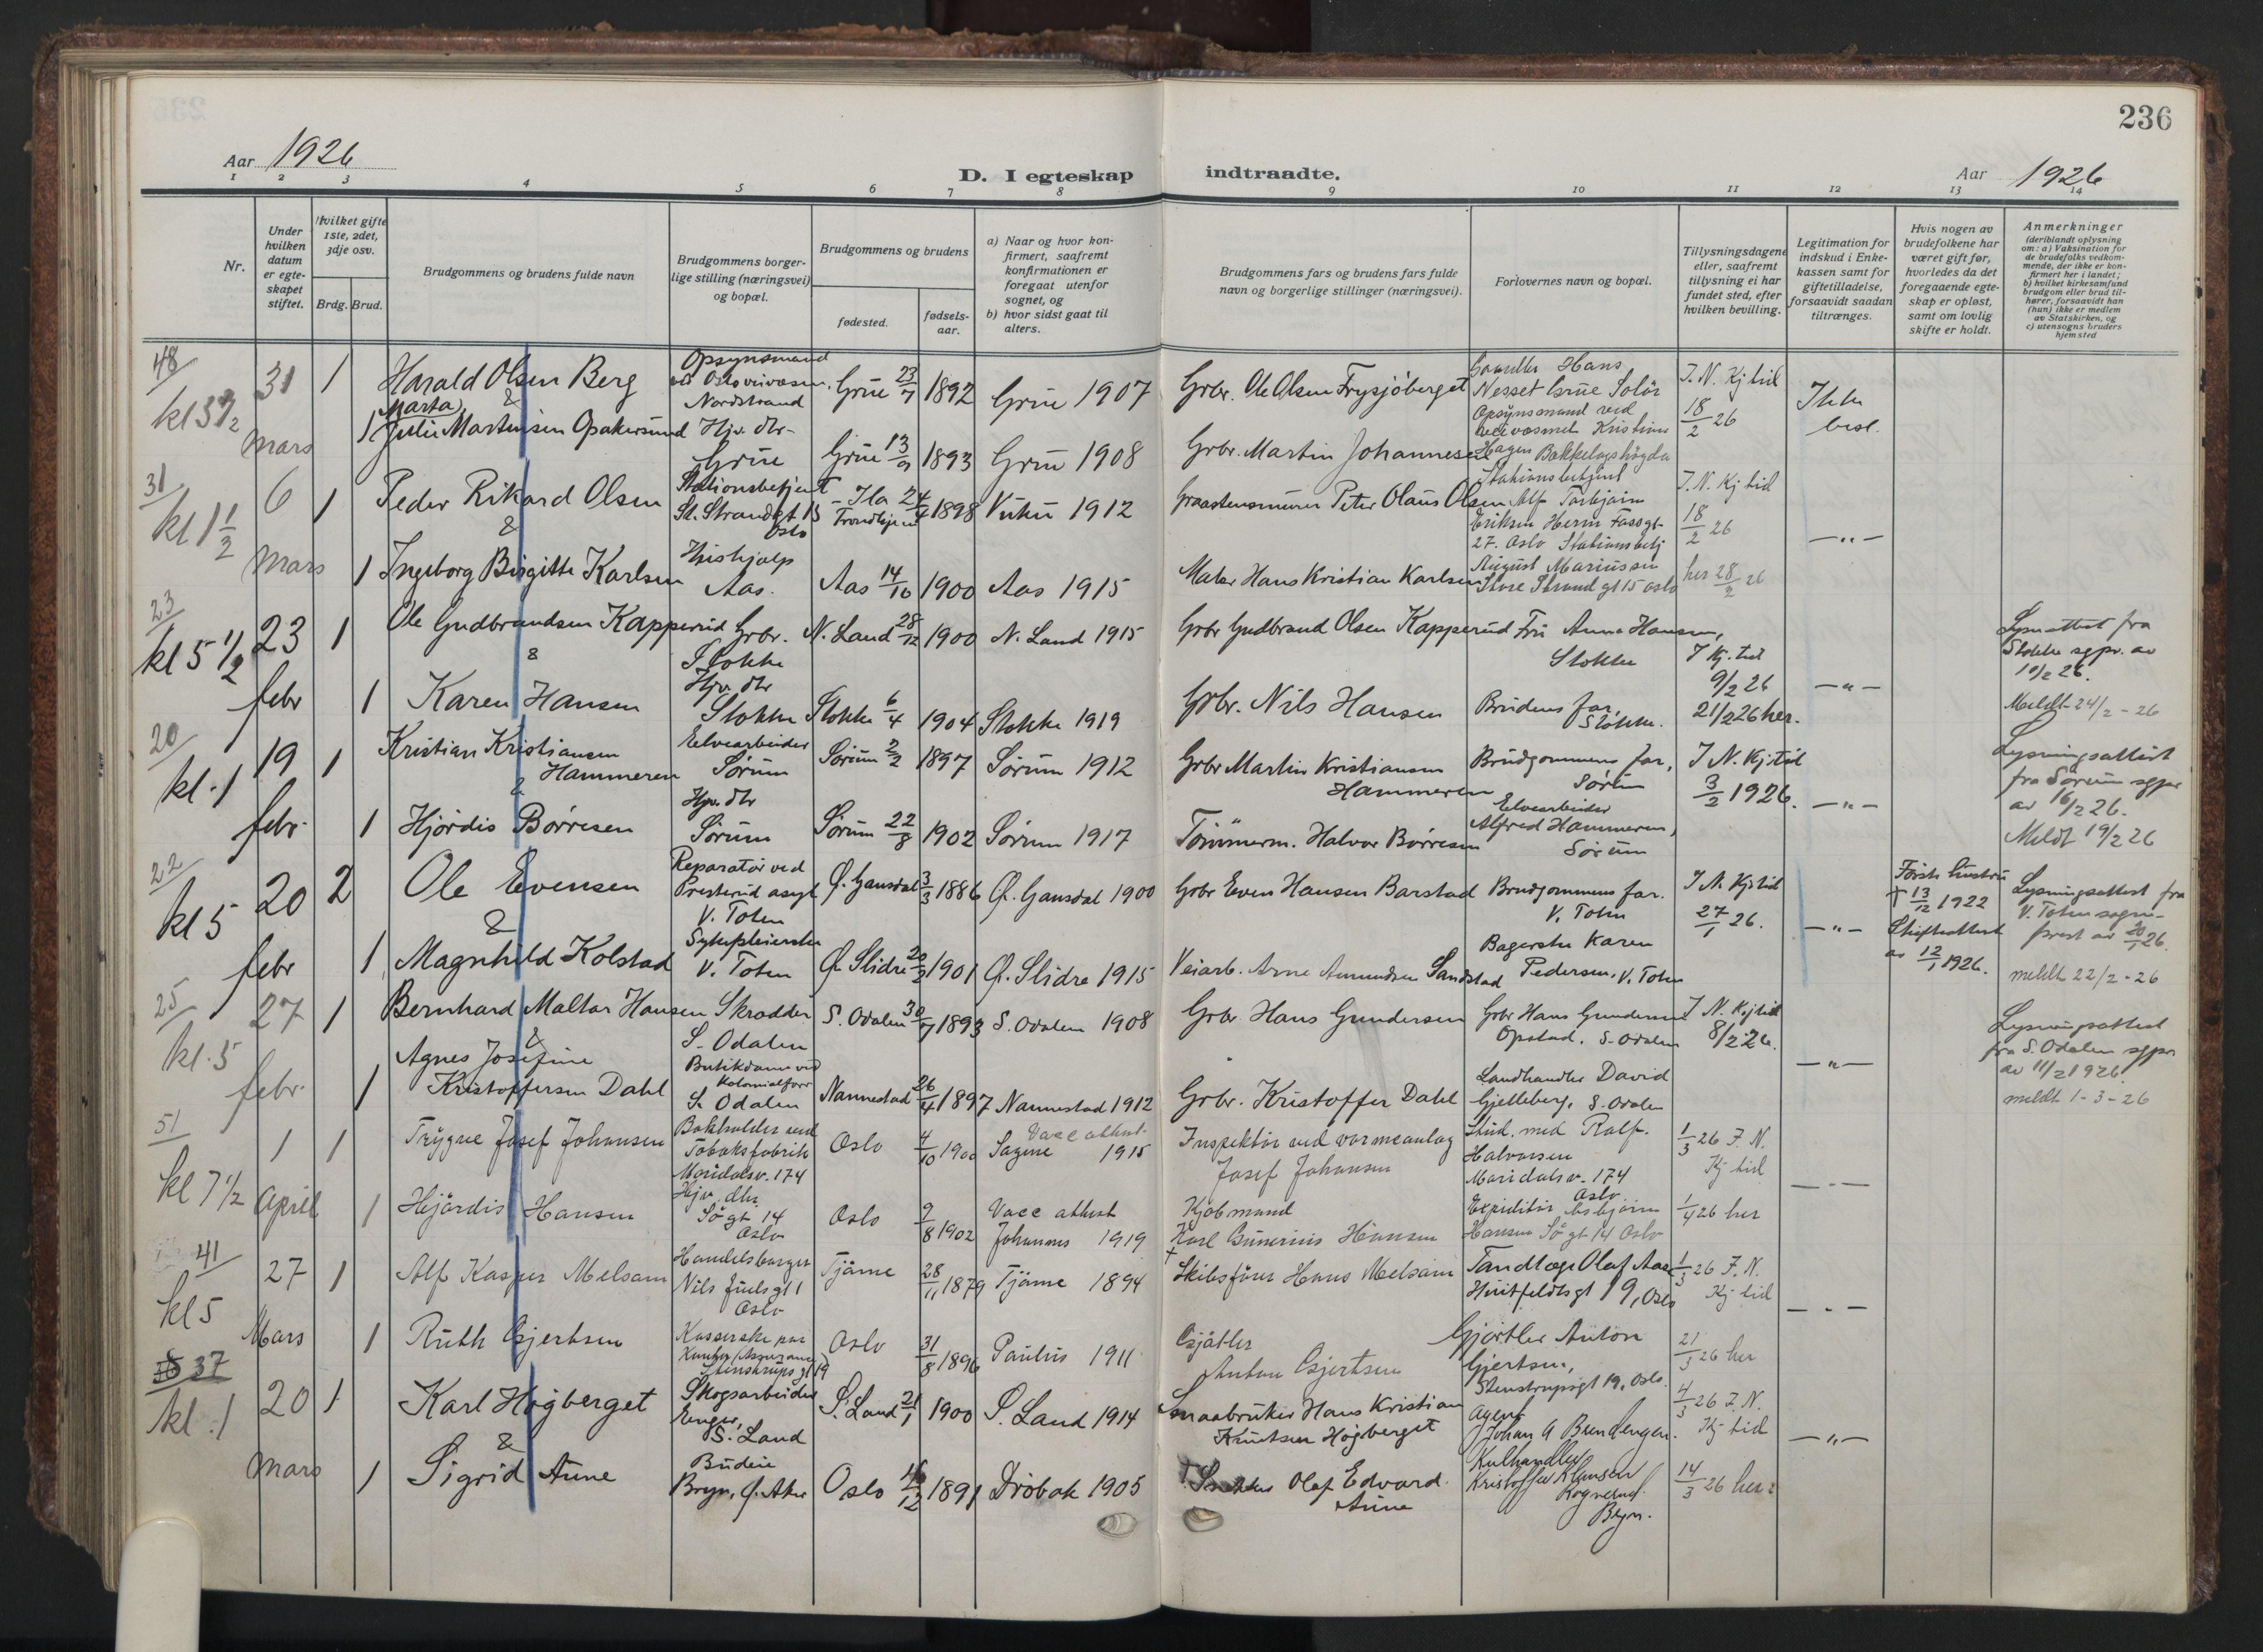 236
Aar 1926
D. I egteskap indtraadte.
Aar 1926
1 2 3 4 5 6 7 8 9 10 11 12 13 14
Nr.
Under hvilken datum er egteskapet stiftet.
Hvilket gifte 1ste, 2det, 3dje osv.
Brdg. Brud.
Brudgommens og brudens fulde navn
Brudgommens borgerlige stilling (næringsvei) og bopæl.
Brudgommens og brudens
fødested.
fødselsaar.
a) Naar og hvor konfirmert, saafremt konfirmationen er foregaat utenfor sognet, og
b) hvor sidst gaat til alters.
Brudgommens fars og brudens fars fulde navn og borgerlige stillinger (næringsvei).
Forlovernes navn og bopæl.
Tillysningsdagene eller, saafremt tillysning ei har fundet sted, efter hvilken bevilling.
Legitimation for indskud i Enkekassen samt for giftetilladelse, forsaavidt saadan tiltrænges.
Hvis nogen av brudefolkene har været gift før, hvorledes da det foregaaende egteskap er opløst, samt om lovlig skifte er holdt.
Anmerkninger
(deriblandt oplysning om: a) Vaksination for de brudefolks vedkommende, der ikke er konfirmert her i landet;
b) hvilket kirkesamfund brudgom eller brud tilhører, forsaavidt han (hun) ikke er medlem av Statskirken, og
c) utensogns bruders hjemsted
48 kl 3 1/2 31 Mars 1 Harald Olsen Berg Opsynsmand ved Oslo veivæsen, Nordstrand Grue 23/7 1892 Grue 1907 Grbr. Ole Olsen Frysjøberget Hans Nesset Grue Solør I. N. Kj tid 18/2 26 Ikke besl.
&
1 Marta Julie Martinsen Opakersund Hjv. dtr Grue Grue 13/9 1893 Grue 1908 Grbr. Martin Johannesen Opsynsmand ved veivæsenet Kristian Hagen Bækkelagshøgda
31 kl 1 1/2 6 Mars 1 Peder Rikard Olsen Stationsbetjent St. Strandgt 15 Oslo Ila Trondhjem 24/4 1898 Vuku 1912 Graastensmurer Peter Olaus Olsen Stationsbetjent Alf Torbjørn Eriksen Herm Fossgt 27. Oslo I. N. Kj tid 18/2 26 — " —
&
1 Ingeborg Birgitte Karlsen Hushjælp Aas. Aas 14/10 1900 Aas 1915 Maler Hans Kristian Karlsen Stationsbetj August Mariussen Store Strandgt 15 Oslo her 28/2 26
23 kl 5 1/2 23 febr 1 Ole Gudbrandsen Kapperud Grbr. Stokke N. Land 28/12 1900 N. Land 1915 Grbr Gudbrand Olsen Kapperud Fru Anna Hansen, Stokke I Kj. tid 9/2 26 — " — Lysnattest fra Stokke sgpr. av 10/2 26.
&
1 Karen Hansen Hjv. dtr Stokke Stokke 6/4 1904 Stokke 1919 Grbr. Nils Hansen Brudens far, Stokke. 21/2 26 her. Meldt 24/2 - 26
20 kl. 1 19 febr. 1 Kristian Kristiansen Hammeren Elvearbeider Sørum Sørum 2/2 1897 Sørum 1912 Grbr Martin Kristiansen Hammeren Brudgommens far, Sørum I N. Kj. tid 3/2 1926. — " — Lysningsattest fra Sørum sgpr av 16/2 26.
&
1 Hjørdis Børresen Hjv. dtr Sørum Sørum 22/8 1902 Sørum 1917 Tømmerm. Halvor Børresen Elvearbeider Alfred Hammeren, Sørum Meldt 19/2 26
22 kl 5 20 febr 2 Ole Evensen Reparatør ved Presterud asyl V. Toten Ø. Gausdal 3/3 1886 Ø. Gausdal 1900 Grbr Even Hansen Barstad Brudgommens far. V. Toten I N. Kj. tid 27/1 26. — " — Første hustru † 13/12 1922 Skifteattest av 12/1 1926. Lysningsattest fra V. Toten sogneprest av 20/ 26.
&
1 Magnhild Kolstad Sykepleierske V. Toten Ø. Slidre 20/2 1901 Ø. Slidre 1915 Veiarb. Arne Amundsen Sandstad Bagerske Karen Pedersen, V. Toten meldt 22/2 - 26
25 kl. 5 27 febr. 1 Bernhard Maltar Hansen Skrædder S. Odalen S. Odalen 30/7 1893 S. Odalen 1908 Grbr. Hans Gundersen Grbr Hans Gundersen Opstad, S. Odalen I N. Kj tid 8/2 26. — " — Lysningsattest fra S. Odalen sgpr av 11/2 1926.
&
1 Agnes Josefine Kristoffersen Dahl Butikdame ved Kolonialforr S. Odalen Nannestad 26/4 1897 Nannestad 1912 Grbr. Kristoffer Dahl Landhandler David Gjelleberg, S. Odalen meldt 1-3-26
51 kl 7 1/2 1 April 1 Trygve Josef Johansen Bokholder ved Tobaksfabrik Maridalsv. 174 Oslo 4/10 1900 Vacc attest Sagene 1915 Inspektør ved varmeanlæg Josef Johansen Stud. med Ralf Halvorsen Maridalsv. 174 Oslo 1/3 26 I. N. Kj tid — " —
1 Hjørdis Hansen Hjv. dtr. Søgt 14 Oslo Oslo 9/8 1902 Vacc attest Johannes 1919 Kjøbmand Karl Bunerius Hansen Expeditør Asbjørn Hansen Søgt 14 Oslo 1/4 26 her
41 kl 5 27 Mars 1 Alf Kasper Melsom Handelsborger Nils Juelsgt 1 Oslo Tjøme 28/11 1879 Tjøme 1894 † Skibsfører Hans Melsom Tandlæge Olaf Aas Huitfeldtsgt 19, Oslo 1/3 26 I. N. Kj tid — " —
1 Ruth Gjertsen Kasserske paa Kontor (Assurance) Stenstrupsgt 19 Oslo 31/8 1896 Paulus 1911 Gjørtler Anton Gjertsen Gjørtler Anton Gjertsen, Stenstrupsgt 19, Oslo. 21/3 26 her
37 kl. 1 20 Mars 1 Karl Høgberget Skogsarbeider Enger, S. Land S. Land 21/1 1900 S. Land 1914 Smaabruker Hans Kristian Knutsen Høgberget Agent Johan A Brendengen. 4/3 26 I. N. Kj tid — " —
&
1 Sigrid Aune Budeie Bryn, Ø. Aker Oslo 12 1891 Drøbak 1905 † Olaf Edvard Aune Kulhandler Kristoffer Klausen Rognerud Bryn. 14/3 26 her